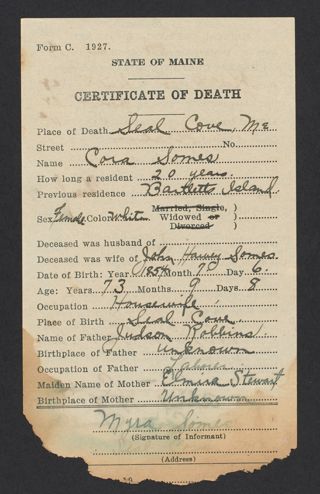 Form C. 1927.
STATE OF MAINE
CERTIFICATE OF DEATH
Place of Death Seal Cove, Me
Street No.
Name Cora Somes
How long a resident 20 years
Previous residence Bartletts Island
Married, Single, )
Sex Female Color White Widowed or )
Divorced )
Deceased was husband of
Deceased was wife of John Harvey Somes
Date of Birth: Year Month 10 Day 6
Age: Years 73 Months 9 Days 8
Occupation Housewife
Place of Birth Seal Cove
Name of Father Judson Robbins
Birthplace of Father unknown
Occupation of Father
Maiden Name of Mother Elmira Stewart
Birthplace of Mother Unknown
Myra Somes
(Signature of Informant)
(Address)